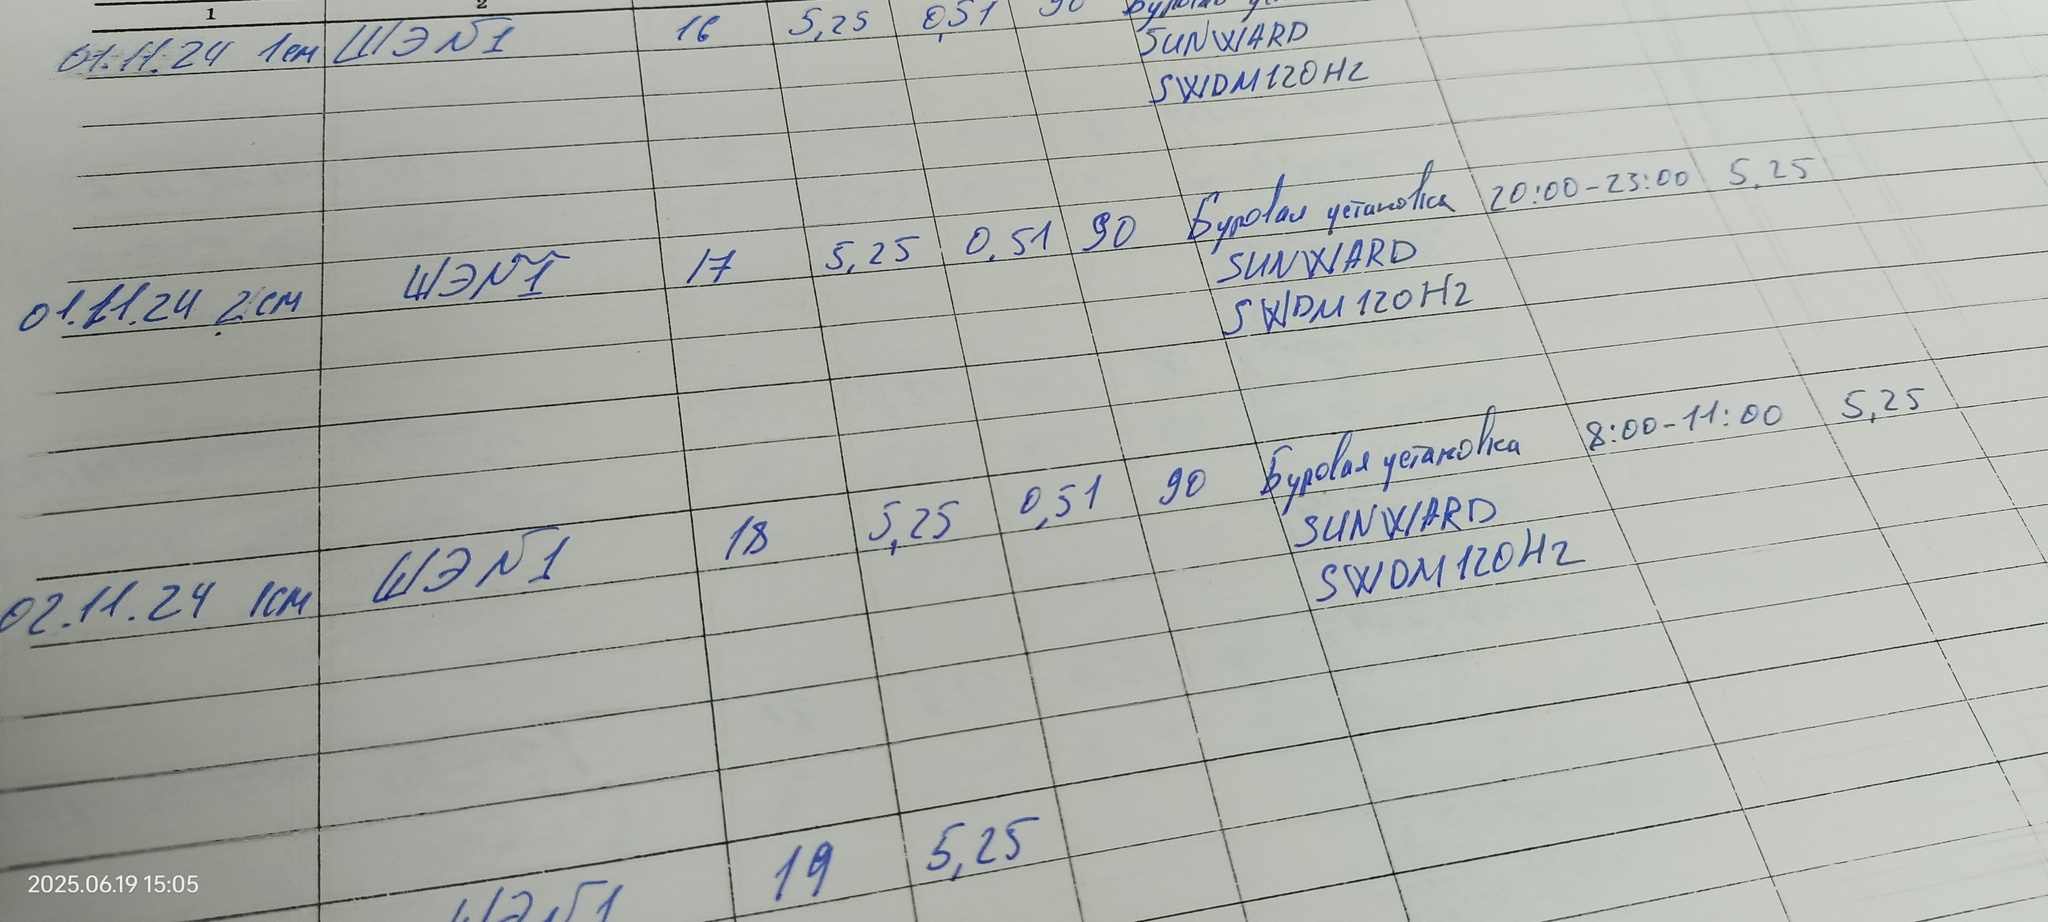 1 2
01.11.24 1см ШЭ №1 16 5,25 0,51 90
SUNWARD
SWDM120Hz
01.11.24 2см ШЭ №1 17 5,25 0,51 90 Буровая установка 20:00-23:00 5,25
SUNWARD
SWDM120Hz
02.11.24 1см ШЭ №1 18 5,25 0,51 90 Буровая установка 8:00-11:00 5,25
SUNWARD
SWDM120Hz
ШЭ №1 19 5,25
2025.06.19 15:05